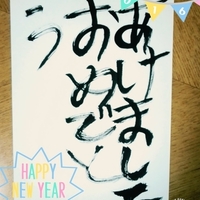 あけまして
おめでと
う
HAPPY
NEW YEAR